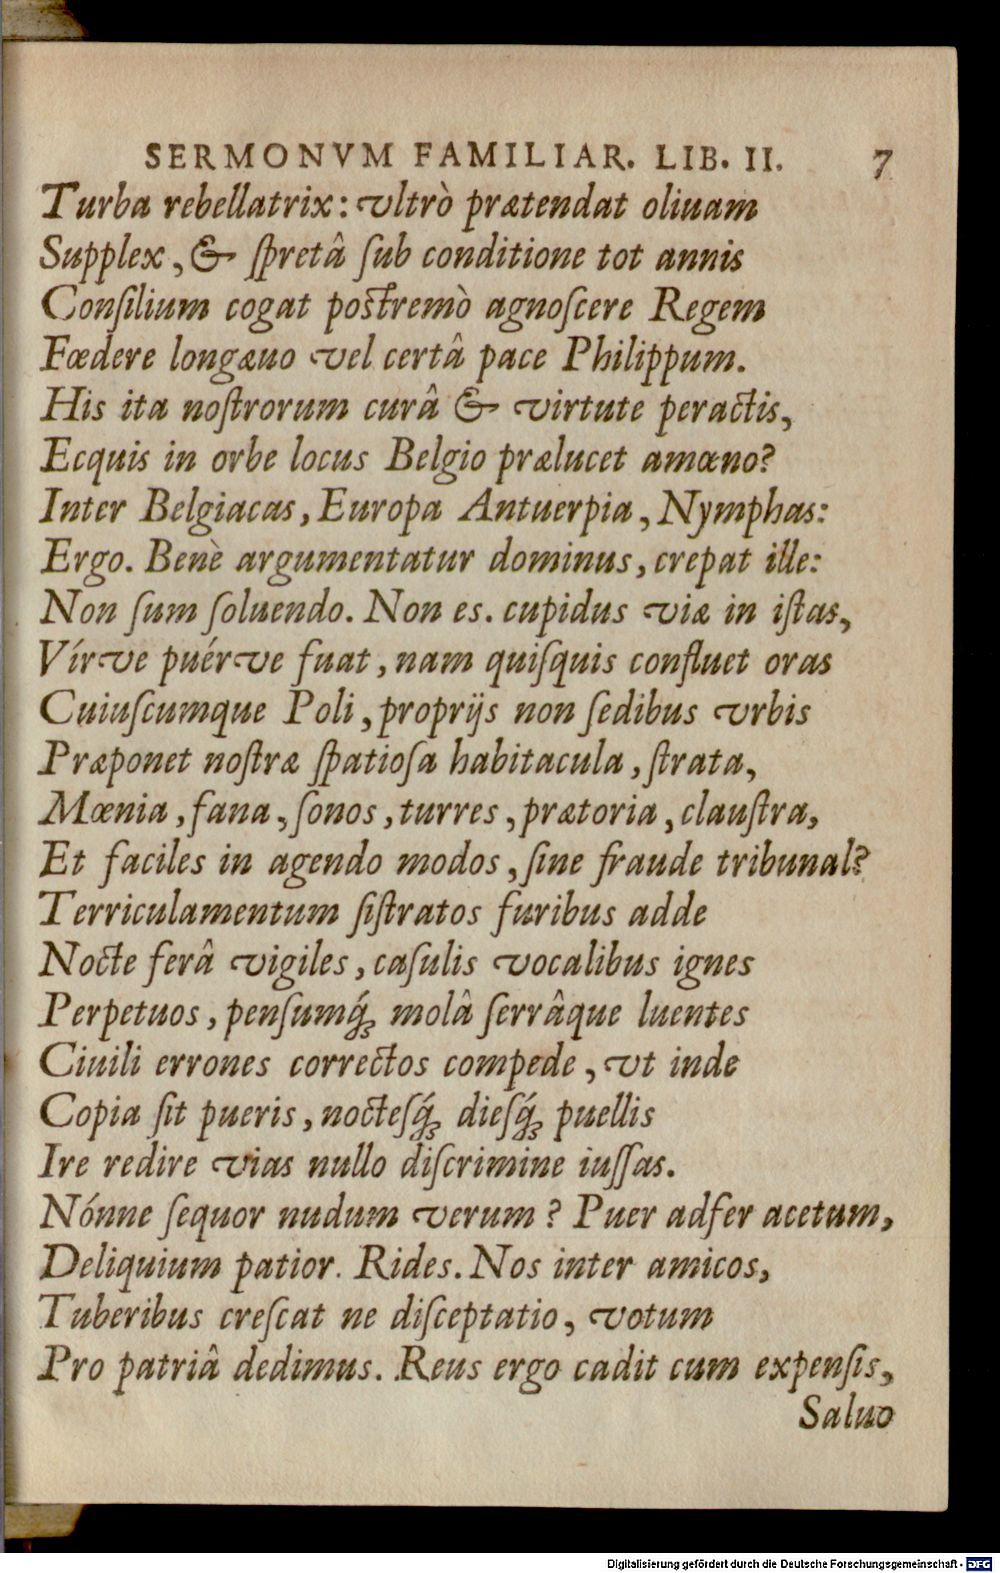 SERMONVM FAMILIAR. LIB. II. 7
Turba rebellatrix: vltrò prætendat oliuam
Supplex, & ſpretâ ſub conditione tot annis
Conſilium cogat poſtremò agnoſcere Regem
Fœdere longæuo vel certâ pace Philippum.
His ita noſtrorum curâ & virtute peractis,
Ecquis in orbe locus Belgio prælucet amœno?
Inter Belgiacas, Europa Antuerpia, Nymphas:
Ergo. Benè argumentatur dominus, crepat ille:
Non ſum ſoluendo. Non es. cupidus viæ in iſtas,
Vírve puérve fuat, nam quiſquis confluet oras
Cuiuſcumque Poli, proprijs non ſedibus vrbis
Præponet noſtræ ſpatioſa habitacula, ſtrata,
Mœnia, fana, ſonos, turres, prætoria, clauſtra,
Et faciles in agendo modos, ſine fraude tribunal?
Terriculamentum ſiſtratos furibus adde
Nocte ferâ vigiles, caſulis vocalibus ignes
Perpetuos, penſumq́ꝫ molâ ſerrâque luentes
Ciuili errones correctos compede, vt inde
Copia ſit pueris, nocteſq́ꝫ dieſq́ꝫ puellis
Ire redire vias nullo diſcrimine iuſſas.
Nónne ſequor nudum verum? Puer adfer acetum,
Deliquium patior. Rides. Nos inter amicos,
Tuberibus creſcat ne diſceptatio, votum
Pro patriâ dedimus. Reus ergo cadit cum expenſis,
Saluo
Digitalisierung gefördert durch die Deutsche Forschungsgemeinschaft - DFG